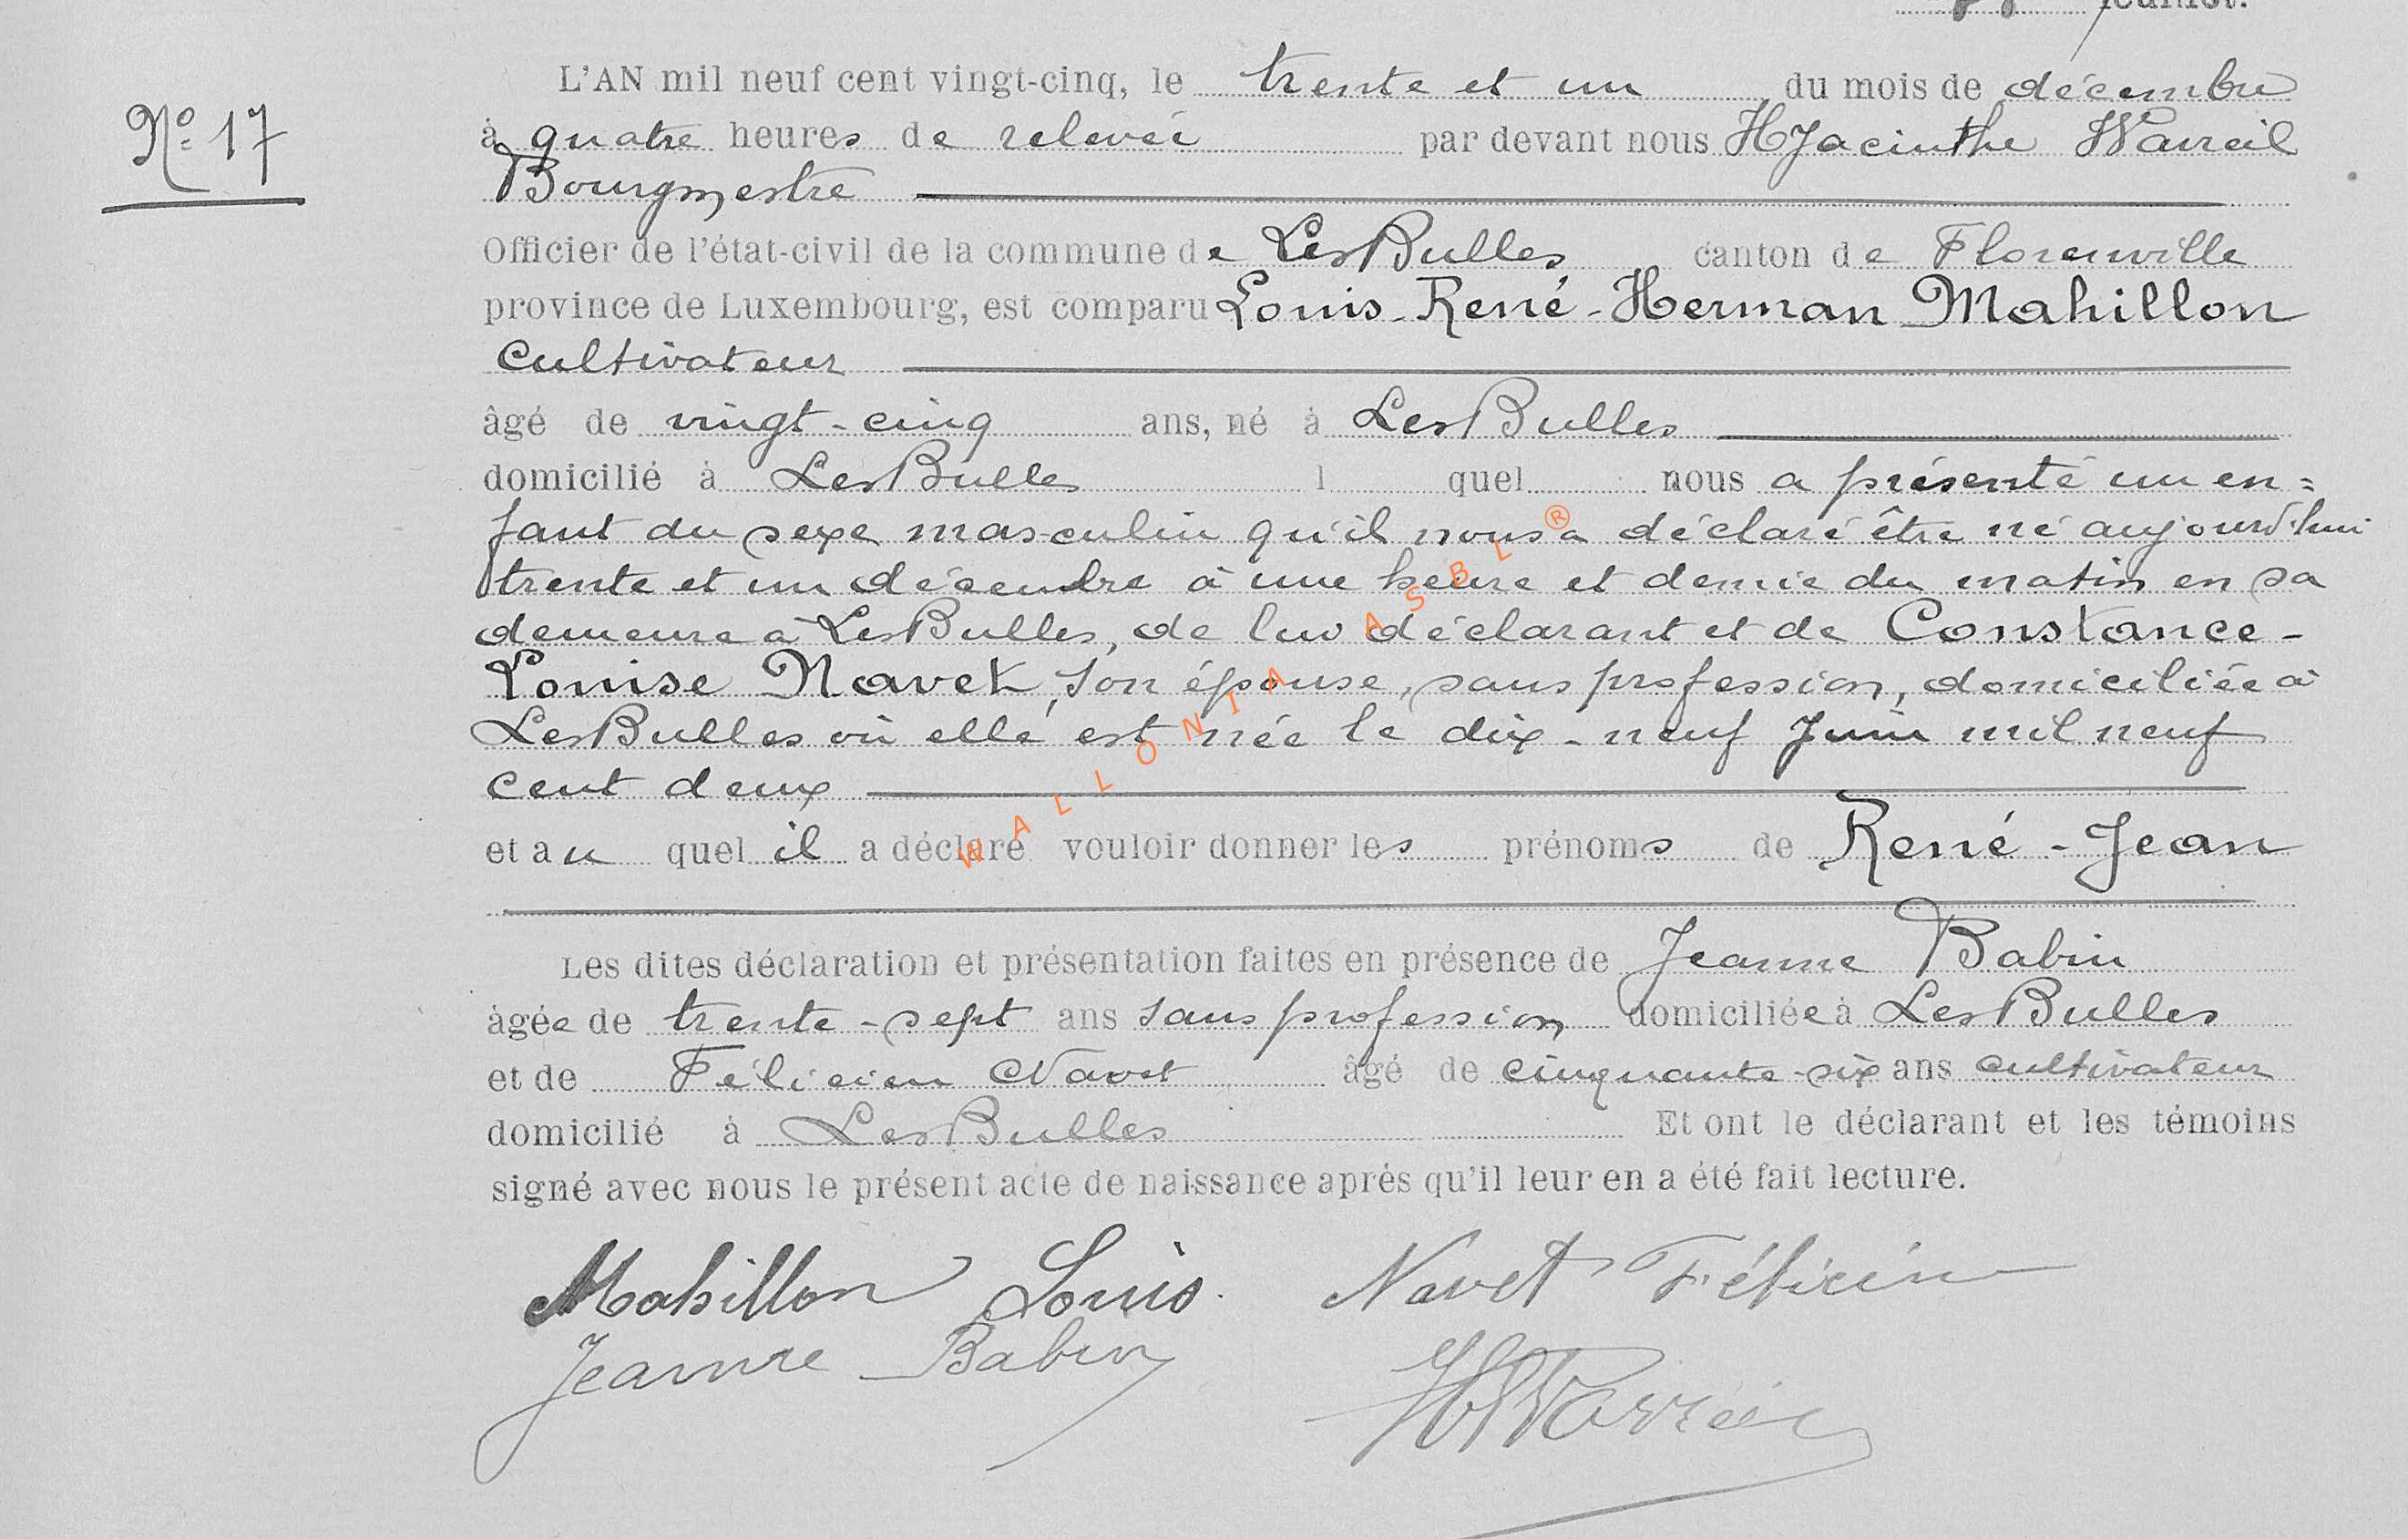 feuillet.
L'AN mil neuf cent vingt-cinq, le trente et un, du mois de décembre
N° 17
à quatre heures de relevée par devant nous HJacinthe Warzeil
Bourgmestre
Officier de l'état-civil de la commune de Les Bulles canton de Florenville
province de Luxembourg, est comparu Louis-René-Herman Mahillon
cultivateur
âgé de vingt-cinq ans, né à Les Bulles
domicilié à Les Bulles l quel nous a présenté un en=
fant du sexe masculin qu'il nous a déclaré être né aujourd'hui
trente et un décembre à une heure et demie du matin en sa
demeure à Les Bulles, de lui déclarant et de Constance-
Louise Navet, son épouse, sans profession, domiciliée à
Les Bulles où elle est née le dix-neuf Juin mil neuf
cent deux
et au quel il a déclaré vouloir donner les prénoms de René-Jean
Les dites déclaration et présentation faites en présence de Jeanne Babin
âgée de trente-sept ans sans profession domiciliée à Les Bulles
et de Félicien Navet âgé de cinquante-six ans cultivateur
domicilié à Les Bulles Et ont le déclarant et les témoins
signé avec nous le présent acte de naissance après qu'il leur en a été fait lecture.
Mahillon Louis. Navet Félicien
Jeanne Babin
WALLONIA ASBL ®